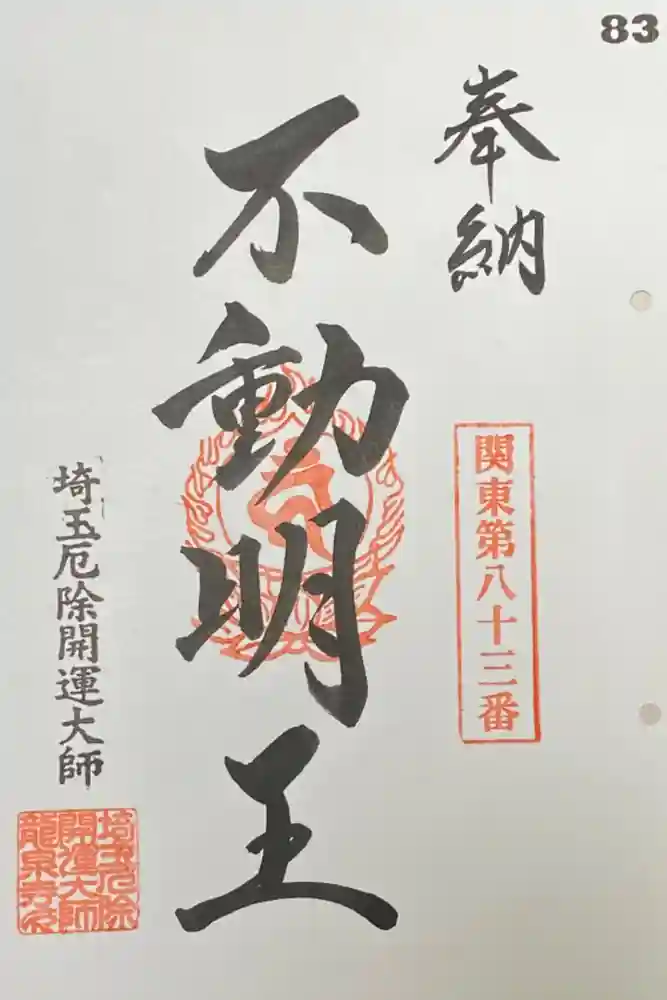 83
奉納
関東第八十三番
不動明王
埼玉厄除開運大師
埼玉厄除
開運大師
龍泉寺